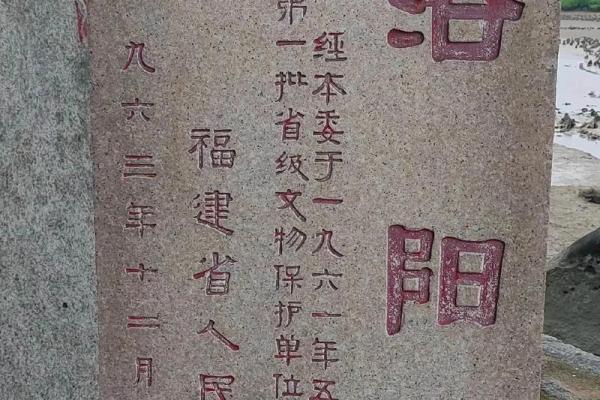 洛阳
經本委于一九六一年五
第一批省级文物保护单位
福建省人民
九六三年十二月